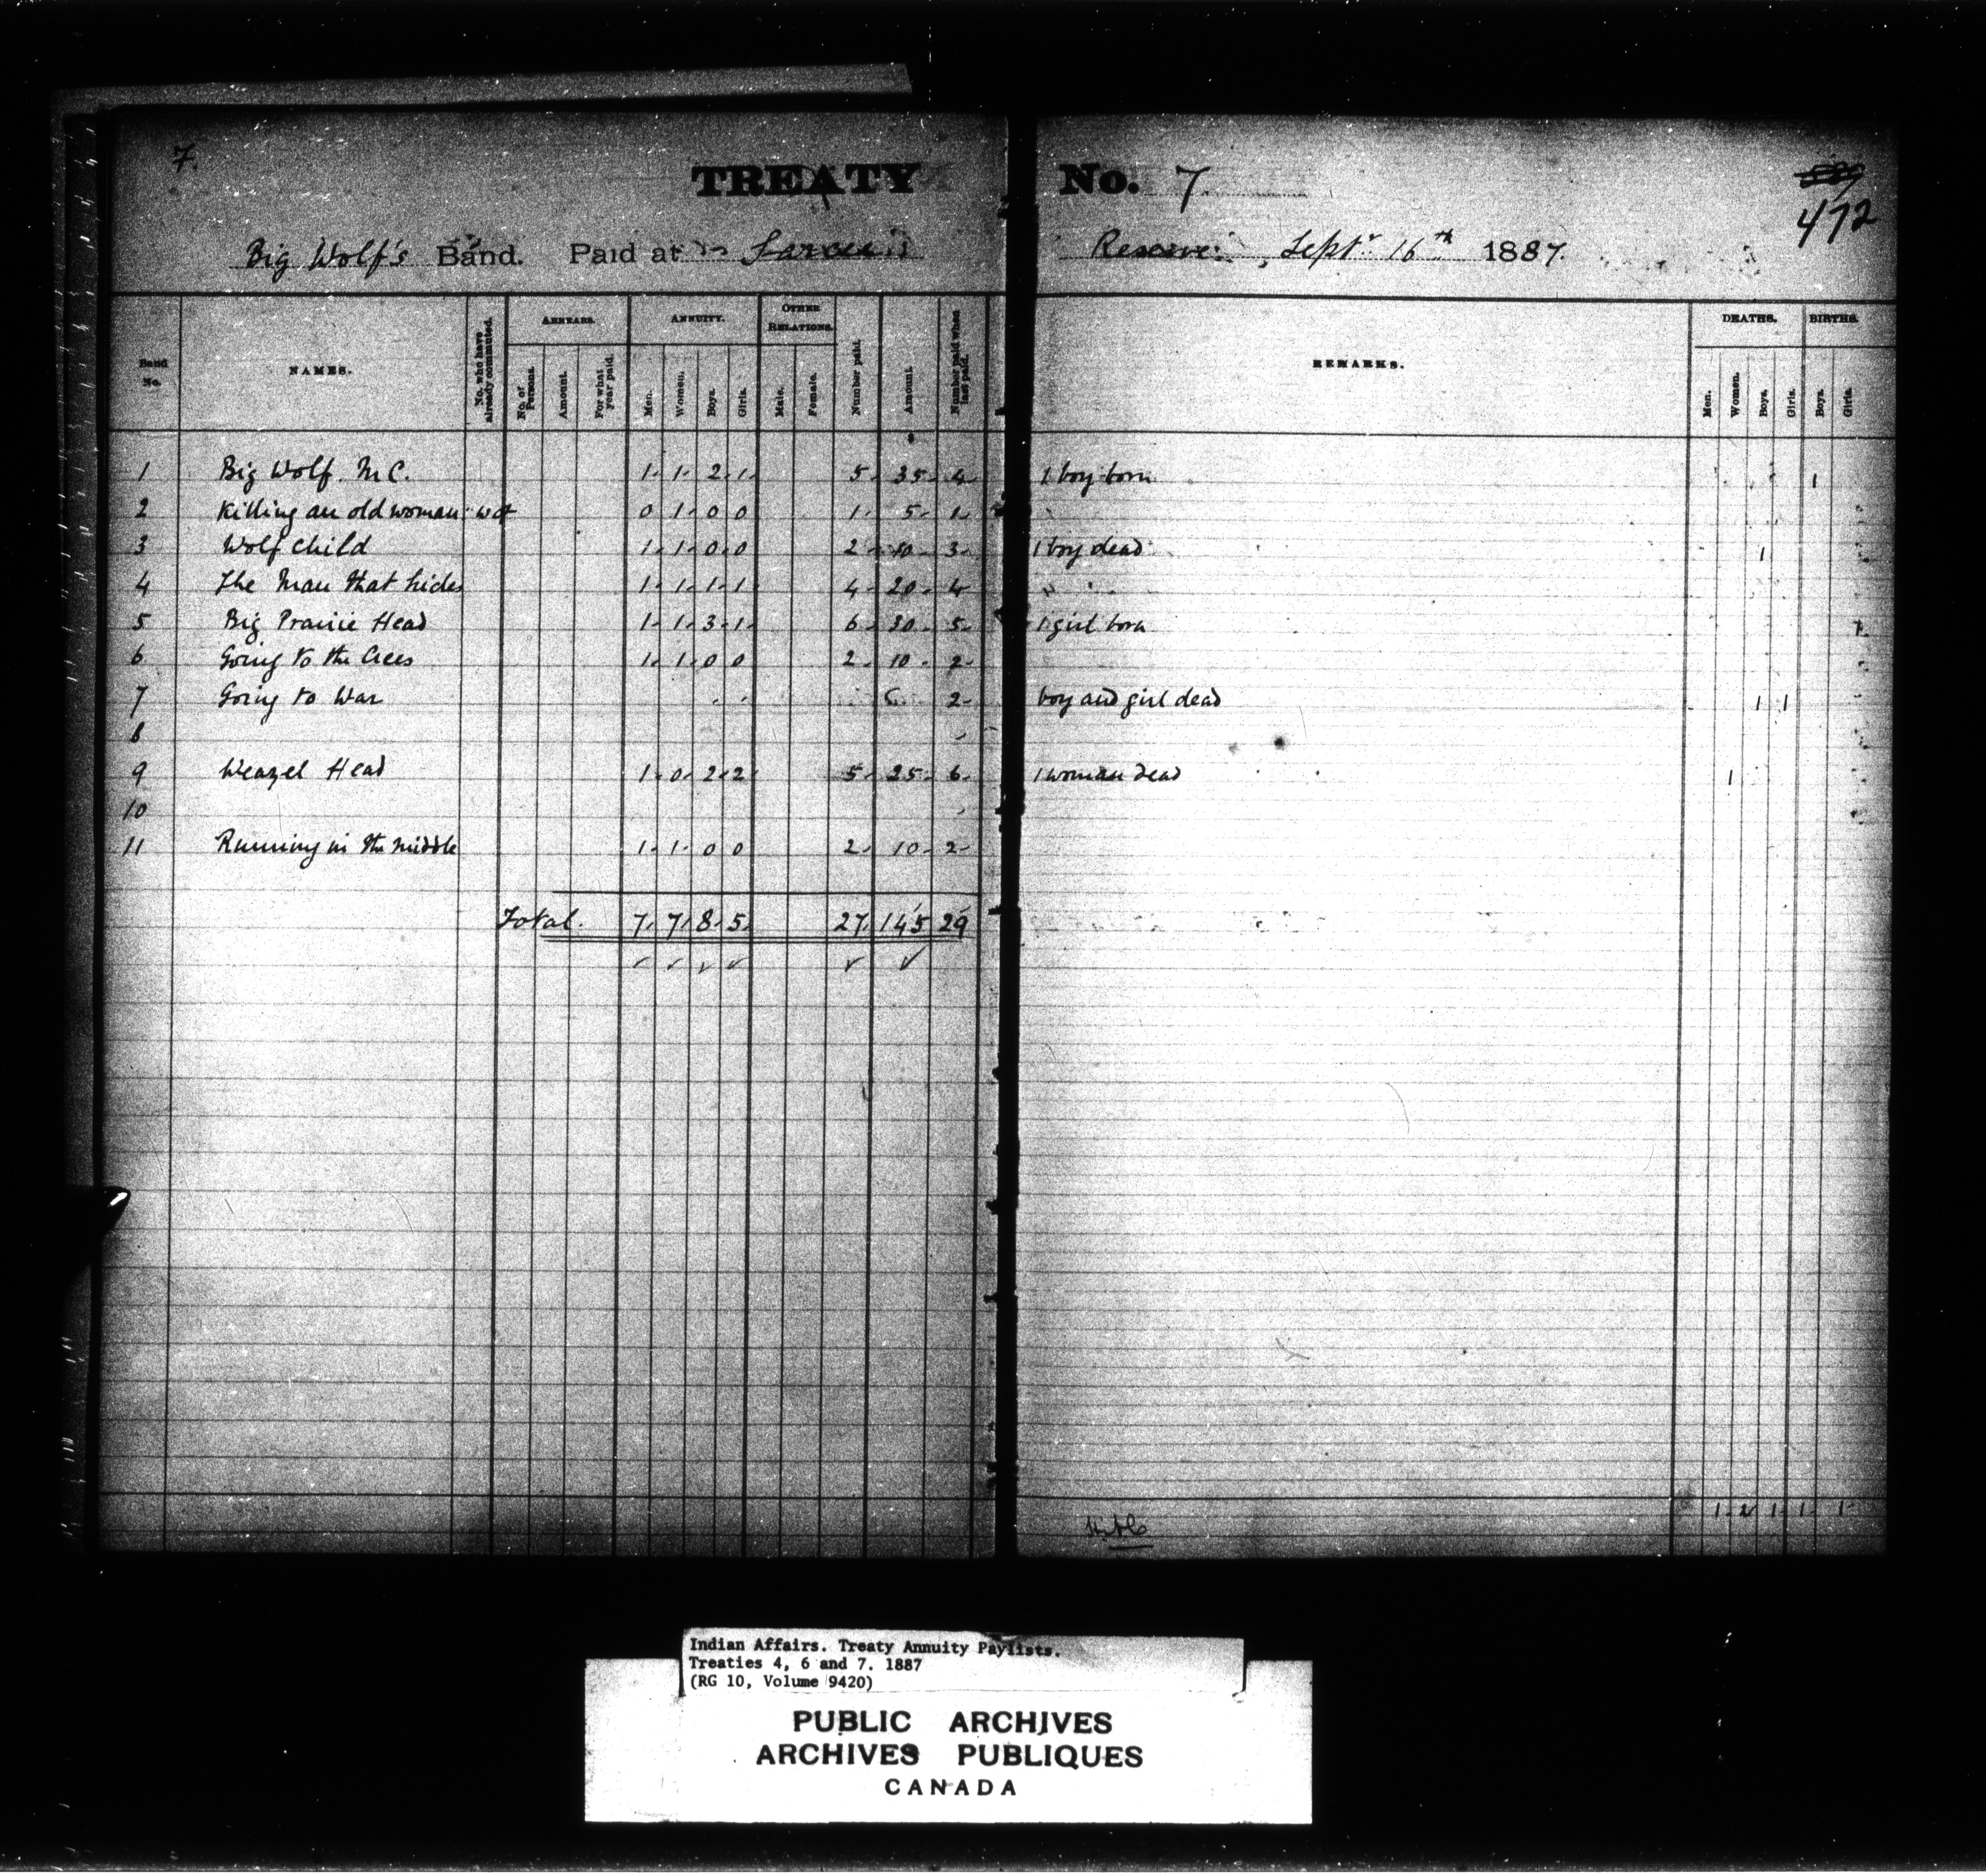 7.
TREATY No. 7
472
Big Wolf's Band. Paid at Sarcee Reserve, Septr 16th 1887.
Band No. NAMES. No. who have already commuted. ARREARS. No. of Persons. Amount. For what year paid. ANNUITY. Men. Women. Boys. Girls. OTHER RELATIONS. Male. Female. Number paid. Amount. Number paid when last paid. REMARKS. DEATHS. Men. Women. Boys. Girls. BIRTHS. Boys. Girls.
1 Big Wolf. M C. 1. 1. 2. 1. 5. 35. 4. 1 boy born 1
2 Killing an old woman 0 1. 0 0 1. 5. 1.
3 Wolf Child 1. 1. 0. 0 2 10. 3. 1 boy dead 1
4 The Man that hides 1. 1. 1. 1 4. 20. 4 "
5 Big Prairie Head 1. 1. 3. 1. 6. 30. 5. 1 girl born 1
6 Going to the Crees 1. 1. 0 0 2. 10. 2.
7 Going to War 2. boy and girl dead 1 1
8
9 Weazel Head 1. 0. 2. 2 5. 25. 6. 1 woman dead 1
10
11 Running in the middle 1. 1. 0 0 2. 10. 2.
Total. 7. 7. 8. 5. 27. 145 29
1. 2 1. 1. 1.
Indian Affairs. Treaty Annuity Paylists.
Treaties 4, 6 and 7. 1887
(RG 10, Volume 9420)
PUBLIC ARCHIVES
ARCHIVES PUBLIQUES
CANADA